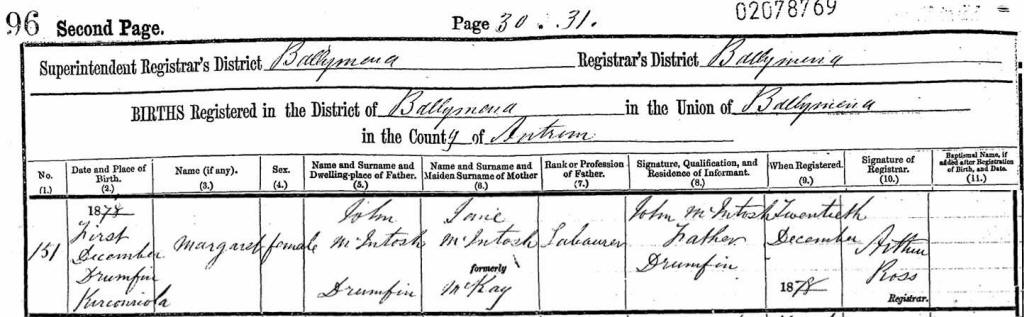 96 Second Page. Page 30.31. 02078769
Superintendent Registrar's District Ballymena Registrar's District Ballymena
BIRTHS Registered in the District of Ballymena in the Union of Ballymena
in the County of Antrim
No. (1.) Date and Place of Birth. (2.) Name (if any). (3.) Sex. (4.) Name and Surname and Dwelling-place of Father. (5.) Name and Surname and Maiden Surname of Mother (6.) Rank or Profession of Father. (7.) Signature, Qualification, and Residence of Informant. (8.) When Registered. (9.) Signature of Registrar. (10.) Baptismal Name, if added after Registration of Birth, and Date. (11.)
1878 John Jane John McIntosh Twentieth
151 First December Margaret female McIntosh McIntosh Labourer Father December Arthur
Drumfin formerly Drumfin Ross
Kirconriola Drumfin McKay 1878 Registrar.